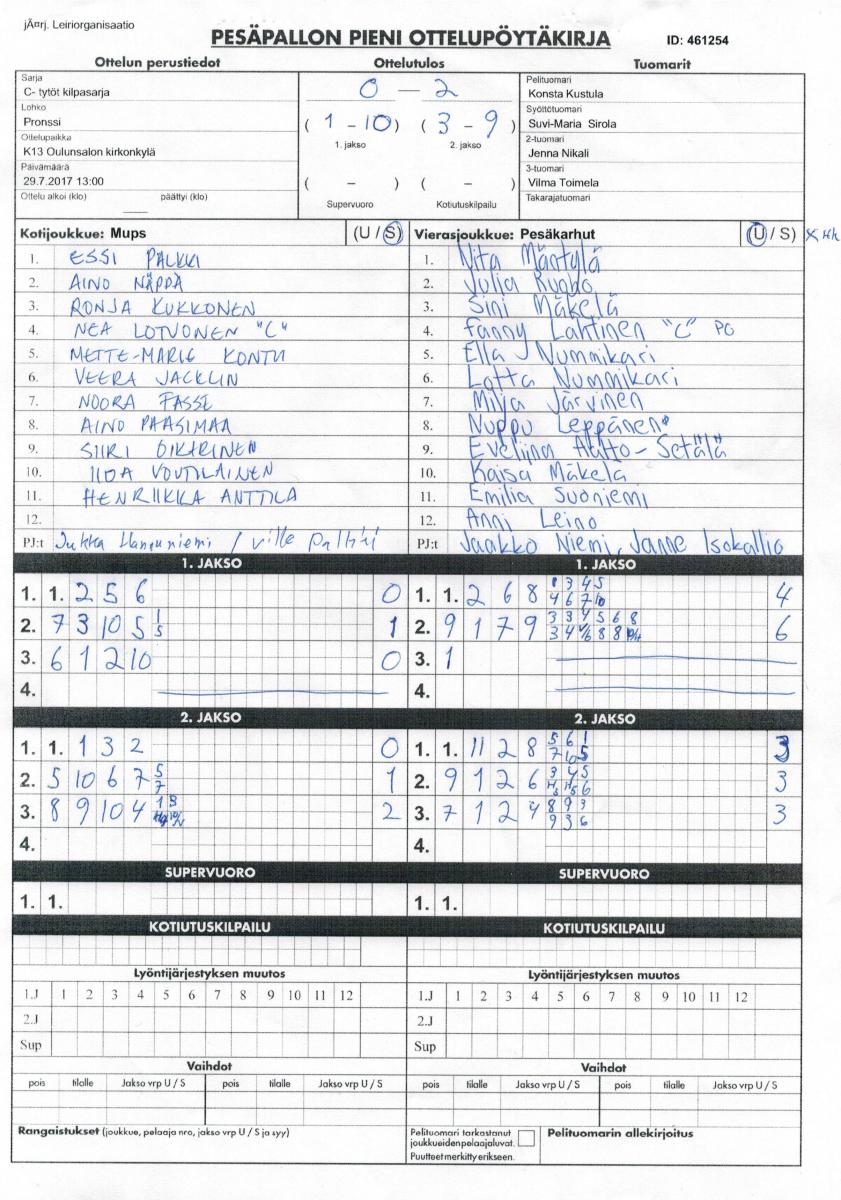 jÃ¤rj. Leiriorganisaatio
PESÄPALLON PIENI OTTELUPÖYTÄKIRJA ID: 461254
Ottelun perustiedot Ottelutulos Tuomarit
Sarja
C- tytöt kilpasarja
Lohko
Pronssi
Ottelupaikka
K13 Oulunsalon kirkonkylä
Päivämäärä
29.7.2017 13:00
Ottelu alkoi (klo) päättyi (klo)
0 — 2
(1 - 10) (3 - 9)
1. jakso 2. jakso
( - ) ( - )
Supervuoro Kotiutuskilpailu
Pelituomari
Konsta Kustula
Syöttötuomari
Suvi-Maria Sirola
2-tuomari
Jenna Nikali
3-tuomari
Vilma Toimela
Takarajatuomari
Kotijoukkue: Mups (U / S)
1. ESSI PALKKI
2. AINO NÄPPÄ
3. RONJA KUKKONEN
4. NEA LOTVONEN "C"
5. METTE-MARIE KONTU
6. VEERA JACKLIN
7. NOORA FASSE
8. AINO PAASIMAA
9. SIIRI OIKARINEN
10. IIDA VOUTILAINEN
11. HENRIIKKA ANTTILA
12.
PJ:t Jukka / Ville
Vierasjoukkue: Pesäkarhut (U / S)
1. Nita Mäntylä
2. Julia
3. Sini Mäkelä
4. Fanny Lahtinen "C" PO
5. Ella Nummikari
6. Lotta Nummikari
7. Milja Järvinen
8. Nuppu Leppänen
9. Eveliina Aalto-Setälä
10. Kaisa Mäkelä
11. Emilia Suoniemi
12. Anni Leino
PJ:t Jaakko Niemi, Janne Isokallio
1. JAKSO 1. JAKSO
1. 1. 2 5 6 0
2. 7 3 10 5 1 5 1
3. 6 1 2 10 0
4.
1. 1. 2 6 8 1 3 4 5 4
4 6 7 10
2. 9 1 7 9 3 3 4 5 6 8 6
3. 1
4.
2. JAKSO 2. JAKSO
1. 1. 1 3 2 0
2. 5 10 6 7 5 7 1
3. 8 9 10 4 1 3 2
4.
1. 1. 11 2 8 5 6 1 3
7 10 5
2. 9 1 2 6 3 4 5 3
3. 7 1 2 4 8 9 3 3
9 3 6
4.
SUPERVUORO SUPERVUORO
1. 1. 1. 1.
KOTIUTUSKILPAILU KOTIUTUSKILPAILU
Lyöntijärjestyksen muutos Lyöntijärjestyksen muutos
1.J 1 2 3 4 5 6 7 8 9 10 11 12 1.J 1 2 3 4 5 6 7 8 9 10 11 12
2.J 2.J
Sup Sup
Vaihdot Vaihdot
pois tilalle Jakso vrp U / S pois tilalle Jakso vrp U / S pois tilalle Jakso vrp U / S pois tilalle Jakso vrp U / S
Rangaistukset (joukkue, pelaaja nro, jakso vrp U / S ja syy)
Pelituomari tarkastanut
joukkueiden pelaajaluvat.
Puutteet merkitty erikseen.
Pelituomarin allekirjoitus